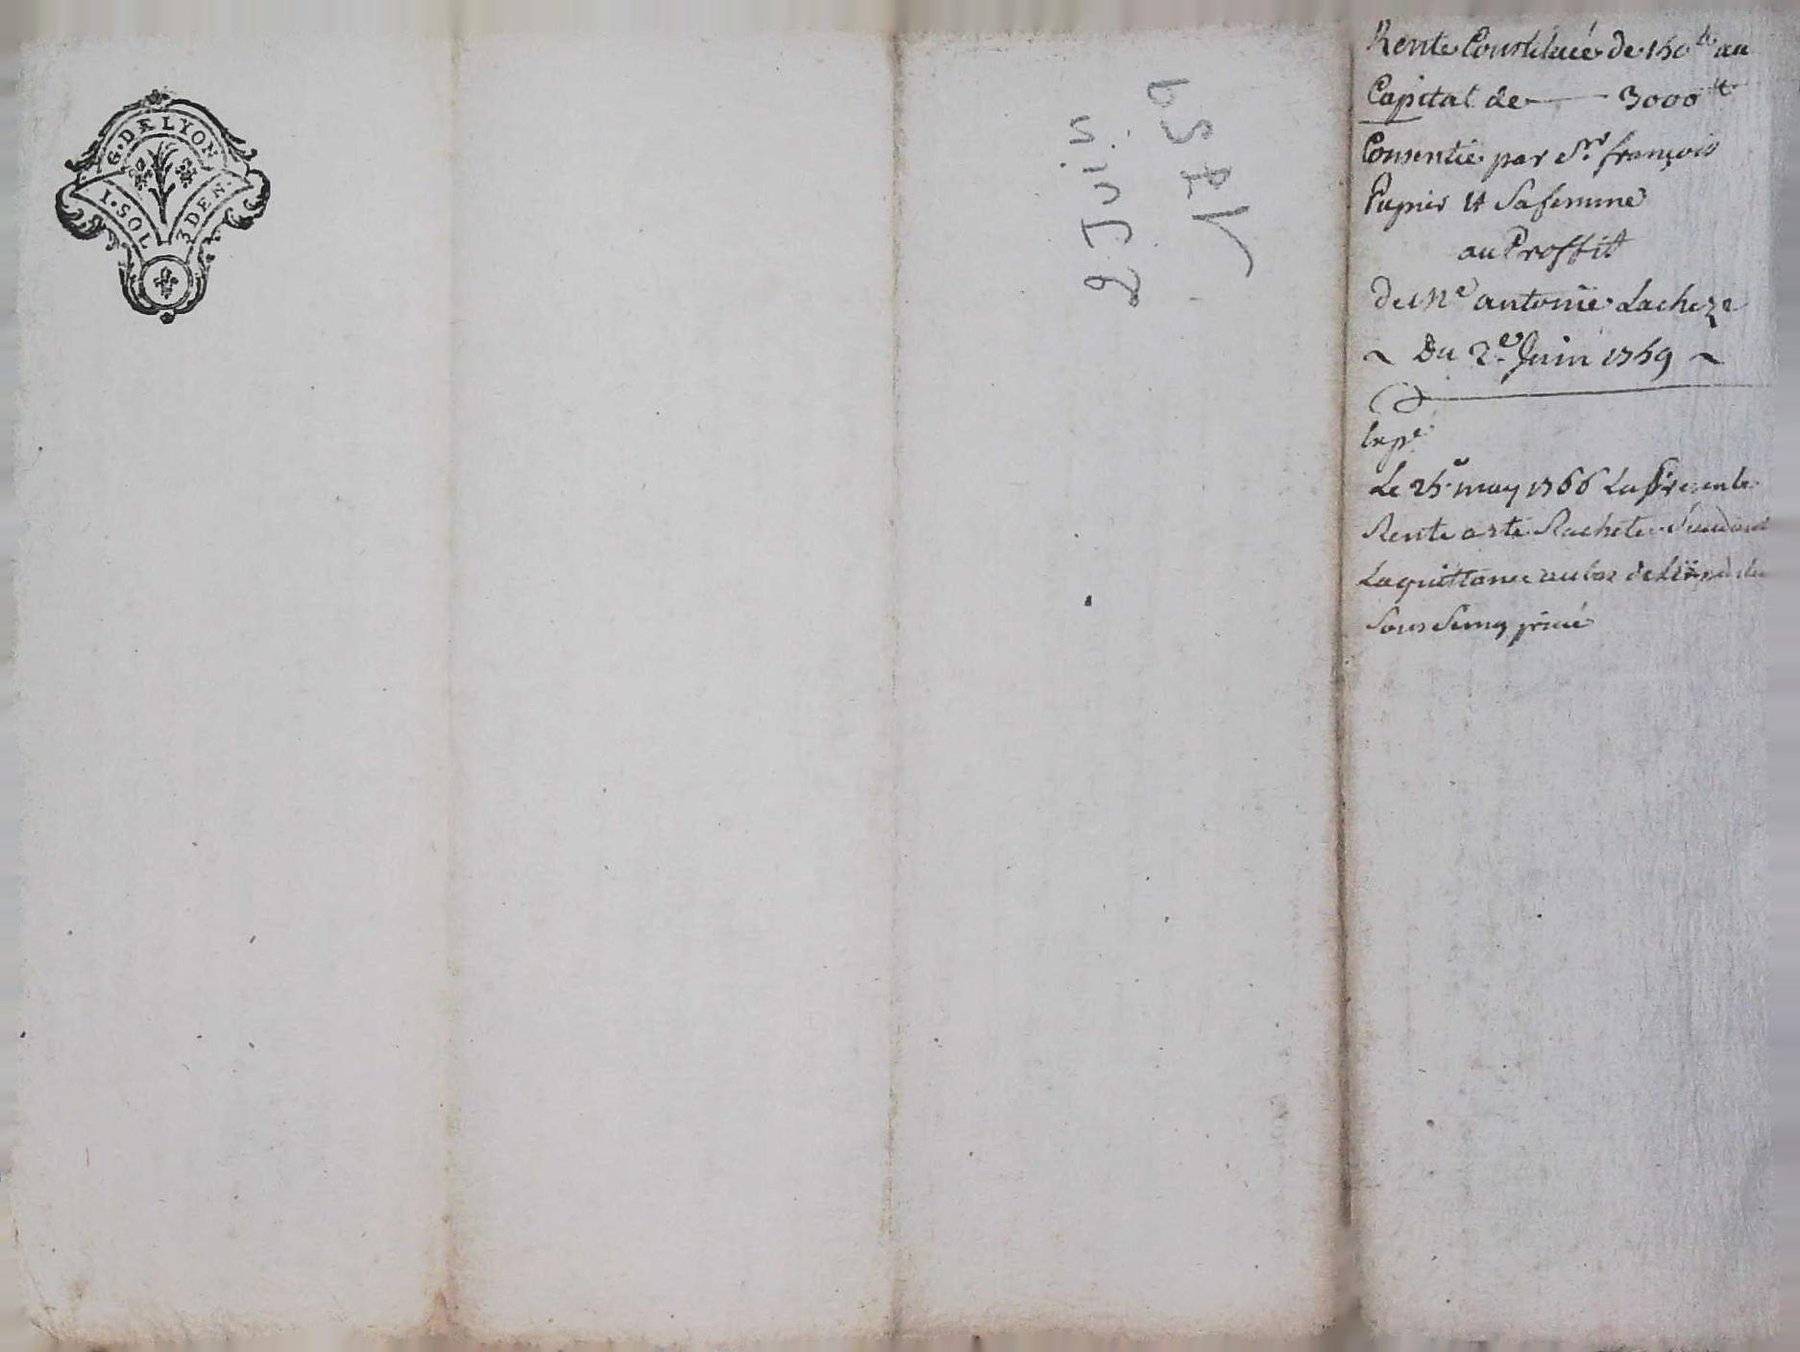 G. DE LYON
1. SOL 3 DEN.
2 Juin
1759
Rente Constituée de 150 ₶ au
Capital de — 3000 ₶
Consentie par Sr. françois
Pupier et Sa femme
au Proffit
de Me antoine Lacheze
~ Du 2e Juin 1759 ~
exp.e
Le 25e may 1766 La presente
Rente a eté Rachetée Suivant
La quittance au bas de
Sous Seing privé